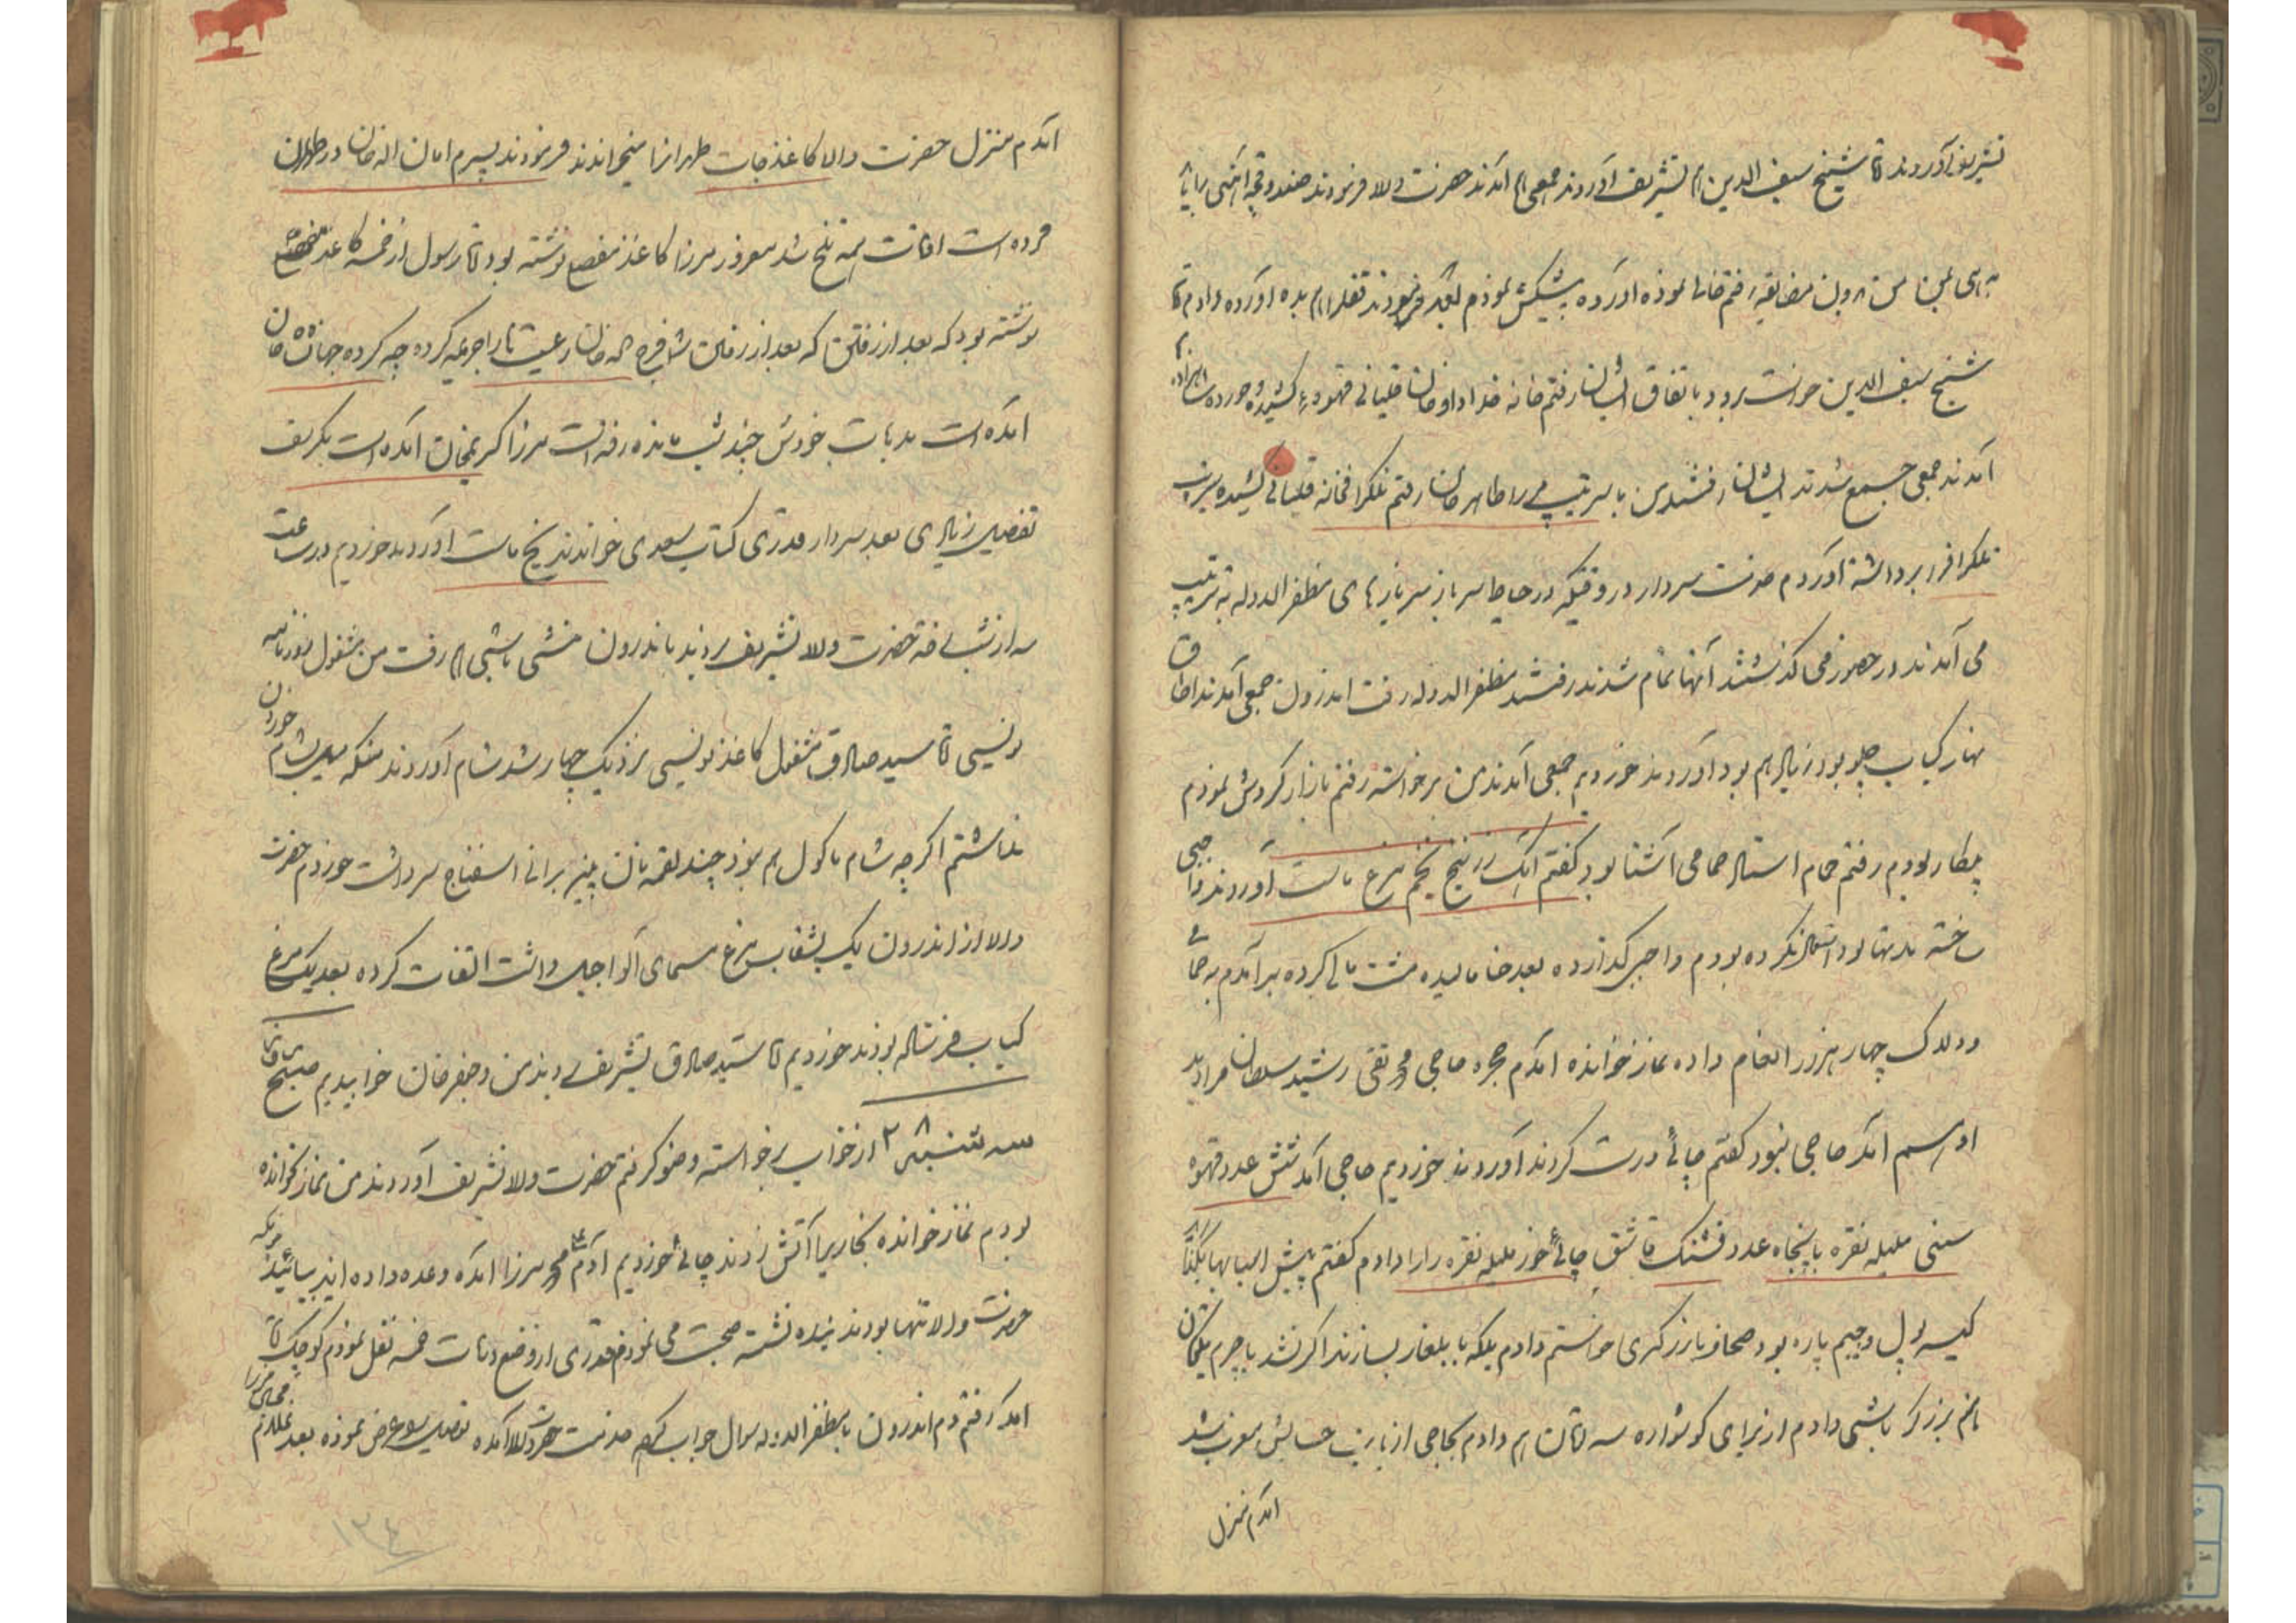 تشریف آوردند تا شیخ سیف الدین هم تشریف آوردند جمعی هم آمدند حضرت والا فرمودند صندوقچه آهنی را
من بدون مضایقه رفتم خانه نموده آورده پیشکش نمودم بعد فرمودند قفل را هم بده آورده دادم تا
شیخ سیف الدین خواست برود باتفاق ایشان رفتم خانه خداداد خان قلیانی قهوه کشیده خورده
آمدند جمعی جمع شدند ایشان رفتند من با سرتیپ طاهر خان رفتم تلگرافخانه قلیانی کشیده
تلگراف را برداشته آوردم خدمت سردار در وقتیکه در حیاط سرباز سربازهای مظفر الدوله به ترتیب
می آمدند در حضور می گذشتند آنها تمام شدند رفتند مظفر الدوله رفت اندرون جمعی آمدند اطاق
نهار کباب چلو بود زیاد هم بود آوردند خوردیم جمعی آمدند من برخواسته رفتم بازار گردش نمودم
بیکار بودم رفتم حمام استاد حمامی آشنا بود گفتم آهک زرنیخ تخم مرغ ماست آوردند واجبی
ساخته مدتها بود استعمال نکرده بودم واجبی گذارده بعد حنا مالیده مشت مالی کرده برآمدم به حمامی
و دلاک چهار هزار انعام داده نماز خوانده آمدم حجره حاجی محمد تقی رشید سلطان مراد
او هم آمد حاجی نبود گفتم چائی درست کردند آوردند خوردیم حاجی آمد شش عدد قهوه
سینی ملیله نقره با پنجاه عدد فشنگ قاشق چائی خوری ملیله نقره را دادم گفتم پیش اسبابها بگذار
کیسه پول و جیبم پاره بود صحاف بازرگری خواستم دادم بلکه با بلغار بسازند اگر نشد با چرم
هم بزرگر باشی دادم از برای گوشواره سه تومان هم دادم بحاجی از بابت حسابش
آمدم منزل
آمدم منزل حضرت والا کاغذجات طهران را میخواندند فرمودند پسرم امان اله خان در طهران
مرده است اوقات همه تلخ شد میرزا کاغذ مفصلی نوشته بود تا رسول از خمسه کاغذ مفصلی
نوشته بود که بعد از رفتن که بعد از رفتن شما فرج اله خان رعیت ها را چه کرده چه کرده جهانشاه خان
آمده است بدهات خودش چند شب مانده رفته است میرزا کریمخان آمده است
تفصیل زیادی بعد سردار قدری کتاب سعدی خواندند یخ ماست آوردند خوردیم در ساعت
سه از شب رفته حضرت والا تشریف بردند باندرون منشی باشی هم رفت من مشغول روزنامه
نویسی تا سید صادق مشغول کاغذ نویسی نزدیک چهار شد شام آوردند منکه میل بشام خوردن
نداشتم اگر چه شام ماکول هم نبود چند لقمه نان پنیر برانی اسفناج سر داشت خوردم حضرت
والا از اندرون یک بشقاب مرغ مسمای آلو داشت التفات کرده بعد یک مرغ
کباب فرستاده بودند خوردیم تا سید صادق تشریف بردند من و جعفر خان خوابیدیم صبح
سه شنبه ۲ از خواب برخواسته وضو گرفتم حضرت والا تشریف آوردند من نماز نخوانده
بودم نماز خوانده بخاریها آتش زدند چائی خوردیم آدم میرزا آمده وعده داده اید بیائید
حضرت والا تنها بودند بنده نشسته صحبت می نمودم قدری از وضع دهات خمسه نقل نمودم کوچک
آمد رفتم دم اندرون با مظفر الدوله سوال جواب کردم خدمت حضرت والا آمده تفصیل عرض نموده بعد
۱۳۴